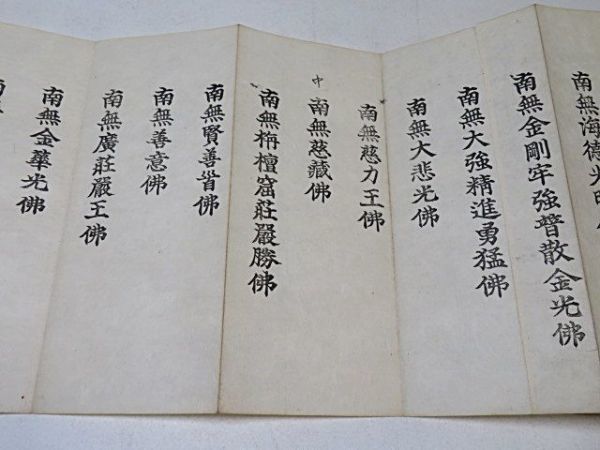 南無海德光明
南無金剛牢強普散金光佛
南無大強精進勇猛佛
南無大悲光佛
南無慈力王佛
中
南無慈藏佛
南無栴檀窟莊嚴勝佛
南無賢善首佛
南無善意佛
南無廣莊嚴王佛
南無金華光佛
南無